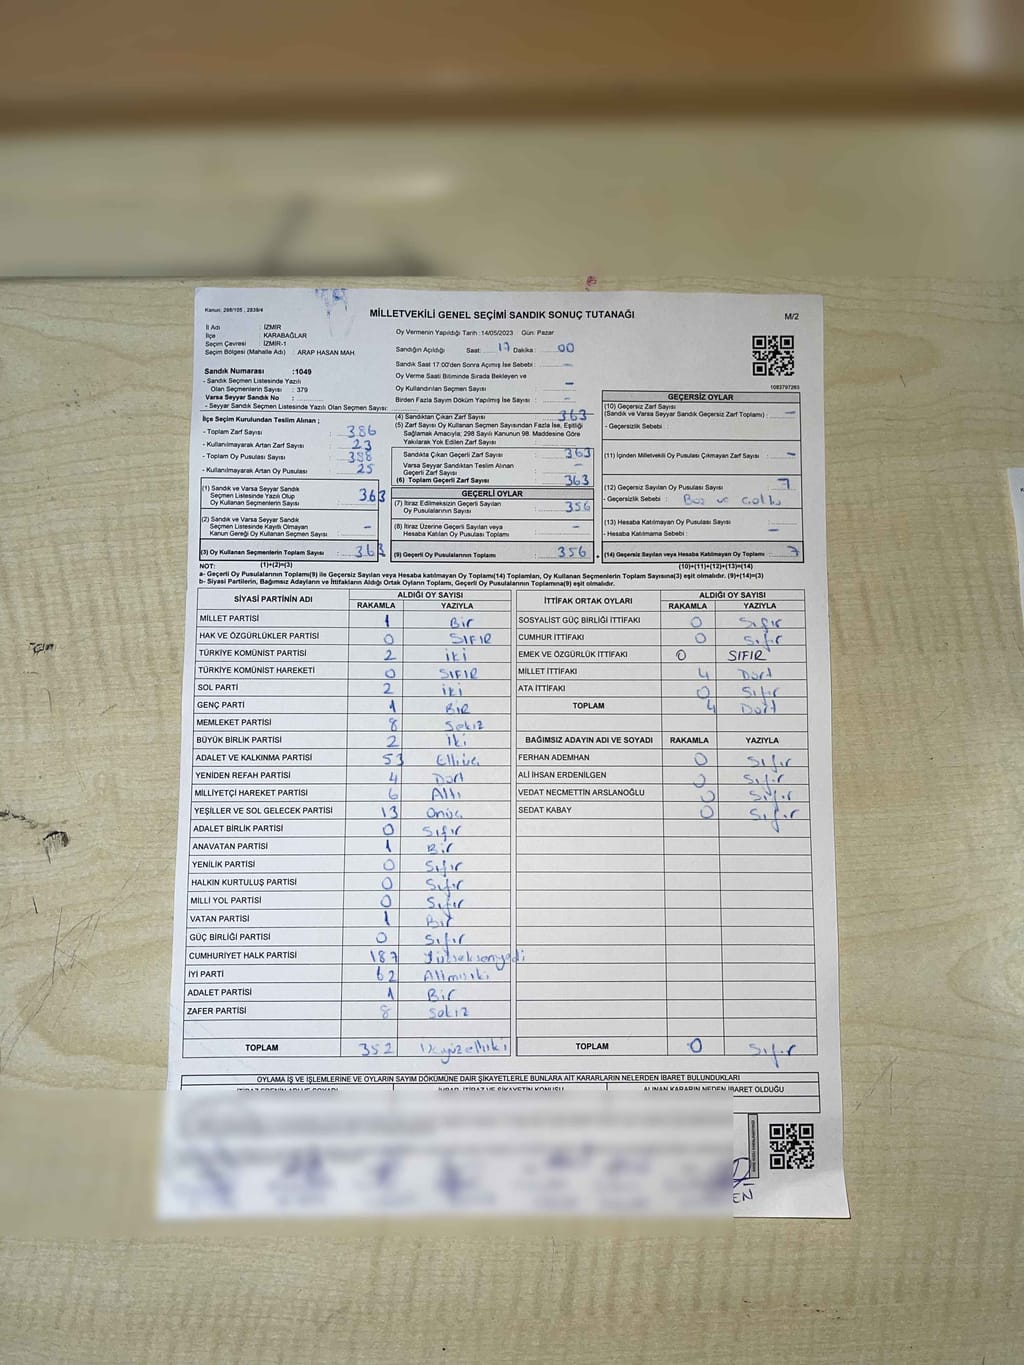 Kanun: 298/105 , 2839/4
MİLLETVEKİLİ GENEL SEÇİMİ SANDIK SONUÇ TUTANAĞI
M/2
İl Adı : İZMİR
İlçe : KARABAĞLAR
Seçim Çevresi : İZMİR-1
Seçim Bölgesi (Mahalle Adı) : ARAP HASAN MAH
Oy Vermenin Yapıldığı Tarih :14/05/2023 Gün: Pazar
Sandığın Açıldığı Saat: 17 Dakika : 00
Sandık Saat 17:00'den Sonra Açılmış İse Sebebi : -
Oy Verme Saati Bitiminde Sırada Bekleyen ve
Oy Kullandırılan Seçmen Sayısı : -
Birden Fazla Sayım Döküm Yapılmış İse Sayısı : -
1083797265
Sandık Numarası :1049
- Sandık Seçmen Listesinde Yazılı
Olan Seçmenlerin Sayısı : 379
Varsa Seyyar Sandık No :
- Seyyar Sandık Seçmen Listesinde Yazılı Olan Seçmen Sayısı:
İlçe Seçim Kurulundan Teslim Alınan ;
- Toplam Zarf Sayısı : 386
- Kullanılmayarak Artan Zarf Sayısı : 23
- Toplam Oy Pusulası Sayısı : 388
- Kullanılmayarak Artan Oy Pusulası : 25
(1) Sandık ve Varsa Seyyar Sandık
Seçmen Listesinde Yazılı Olup
Oy Kullanan Seçmenlerin Sayısı : 363
(2) Sandık ve Varsa Seyyar Sandık
Seçmen Listesinde Kayıtlı Olmayan
Kanun Gereği Oy Kullanan Seçmen Sayısı : -
(3) Oy Kullanan Seçmenlerin Toplam Sayısı : 363
(1)+(2)=(3)
(4) Sandıktan Çıkan Zarf Sayısı : 363
(5) Zarf Sayısı Oy Kullanan Seçmen Sayısından Fazla İse, Eşitliği
Sağlamak Amacıyla; 298 Sayılı Kanunun 98. Maddesine Göre
Yakılarak Yok Edilen Zarf Sayısı :
Sandıkta Çıkan Geçerli Zarf Sayısı : 363
Varsa Seyyar Sandıktan Teslim Alınan
Geçerli Zarf Sayısı : -
(6) Toplam Geçerli Zarf Sayısı : 363
GEÇERLİ OYLAR
(7) İtiraz Edilmeksizin Geçerli Sayılan
Oy Pusulalarının Sayısı : 356
(8) İtiraz Üzerine Geçerli Sayılan veya
Hesaba Katılan Oy Pusulası Sayısı : -
(9) Geçerli Oy Pusulalarının Toplamı : 356
GEÇERSİZ OYLAR
(10) Geçersiz Zarf Sayısı
(Sandık ve Varsa Seyyar Sandık Geçersiz Zarf Toplamı) : -
- Geçersizlik Sebebi :
(11) İçinden Milletvekili Oy Pusulası Çıkmayan Zarf Sayısı : -
(12) Geçersiz Sayılan Oy Pusulası Sayısı : 7
- Geçersizlik Sebebi : ve
(13) Hesaba Katılmayan Oy Pusulası Sayısı :
- Hesaba Katılmama Sebebi : -
(14) Geçersiz Sayılan veya Hesaba Katılmayan Oy Toplamı : 7
(10)+(11)+(12)+(13)=(14)
NOT:
a- Geçerli Oy Pusulalarının Toplamı(9) ile Geçersiz Sayılan veya Hesaba katılmayan Oy Toplamı(14) Toplamları, Oy Kullanan Seçmenlerin Toplam Sayısına(3) eşit olmalıdır. (9)+(14)=(3)
b- Siyasi Partilerin, Bağımsız Adayların ve İttifakların Aldığı Ortak Oyların Toplamı, Geçerli Oy Pusulalarının Toplamına(9) eşit olmalıdır.
SİYASİ PARTİNİN ADI ALDIĞI OY SAYISI
RAKAMLA YAZIYLA
MİLLET PARTİSİ 1 Bir
HAK VE ÖZGÜRLÜKLER PARTİSİ 0 SIFIR
TÜRKİYE KOMÜNİST PARTİSİ 2 iki
TÜRKİYE KOMÜNİST HAREKETİ 0 SIFIR
SOL PARTİ 2 iki
GENÇ PARTİ 1 BİR
MEMLEKET PARTİSİ 8 Sekiz
BÜYÜK BİRLİK PARTİSİ 2 İki
ADALET VE KALKINMA PARTİSİ 53 Elliüç
YENİDEN REFAH PARTİSİ 4 Dört
MİLLİYETÇİ HAREKET PARTİSİ 6 Altı
YEŞİLLER VE SOL GELECEK PARTİSİ 13 Onüç
ADALET BİRLİK PARTİSİ 0 Sıfır
ANAVATAN PARTİSİ 1 Bir
YENİLİK PARTİSİ 0 Sıfır
HALKIN KURTULUŞ PARTİSİ 0 Sıfır
MİLLİ YOL PARTİSİ 0 Sıfır
VATAN PARTİSİ 1 Bir
GÜÇ BİRLİĞİ PARTİSİ 0 Sıfır
CUMHURİYET HALK PARTİSİ 187 Yüzseksenyedi
İYİ PARTİ 62 Altmışiki
ADALET PARTİSİ 1 Bir
ZAFER PARTİSİ 8 Sekiz
TOPLAM 352 Üçyüzelliiki
İTTİFAK ORTAK OYLARI ALDIĞI OY SAYISI
RAKAMLA YAZIYLA
SOSYALİST GÜÇ BİRLİĞİ İTTİFAKI 0 Sıfır
CUMHUR İTTİFAKI 0 Sıfır
EMEK VE ÖZGÜRLÜK İTTİFAKI 0 SIFIR
MİLLET İTTİFAKI 4 Dört
ATA İTTİFAKI 0 Sıfır
TOPLAM 4 Dört
BAĞIMSIZ ADAYIN ADI VE SOYADI RAKAMLA YAZIYLA
FERHAN ADEMHAN 0 Sıfır
ALİ İHSAN ERDENİLGEN 0 Sıfır
VEDAT NECMETTİN ARSLANOĞLU 0 Sıfır
SEDAT KABAY 0 Sıfır
TOPLAM 0 Sıfır
OYLAMA İŞ VE İŞLEMLERİNE VE OYLARIN SAYIM DÖKÜMÜNE DAİR ŞİKAYETLERLE BUNLARA AİT KARARLARIN NELERDEN İBARET BULUNDUKLARI
ALINAN KARARIN NEDEN İBARET OLDUĞU